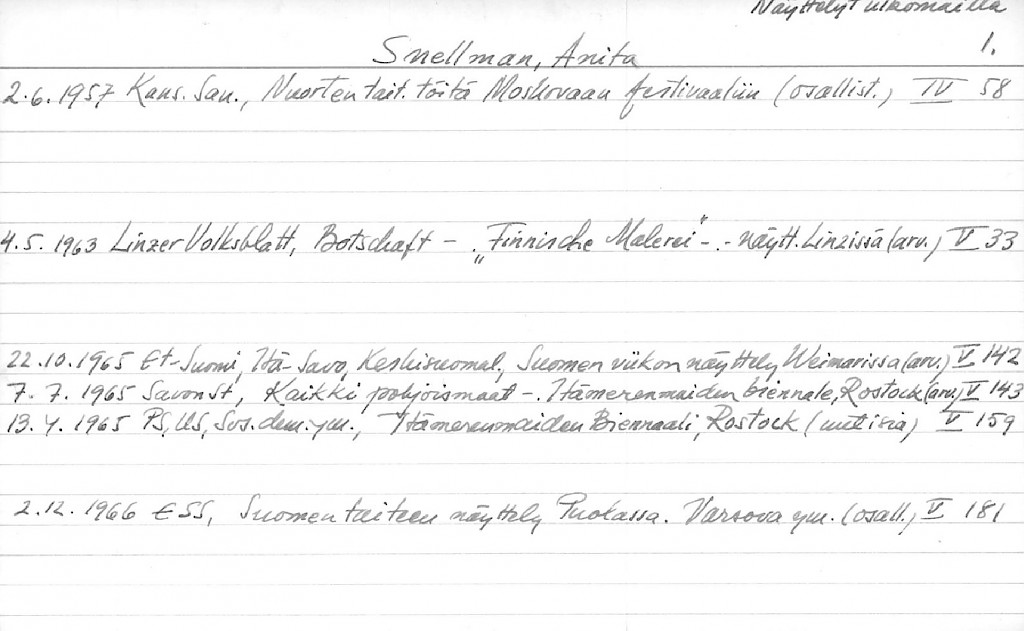 Näyttelyt ulkomailla
1.
Snellman, Anita
2.6.1957 Kans. San., Nuorten tait. töitä Moskovaan festivaaliin (osallist.) IV 58
4.5. 1963 Linzer Volksblatt, Botschaft - "Finnische Malerei" - näytt. Linzissä (arv.) V 33
22.10.1965 Et-Suomi, Itä-Savo, Keskisuomal., Suomen viikon näyttely Weimarissa (arv.) V 142
7.7.1965 Savon St, Kaikki pohjoismaat -. Itämerenmaiden biennale, Rostock (arv.) V 143
13.4.1965 PS, US, Sos.dem. ym., Itämerenmaiden Biennaali, Rostock (uutisia) V 159
2.12.1966 ESS, Suomen taiteen näyttely Puolassa. Varsova ym. (osall.) V 181